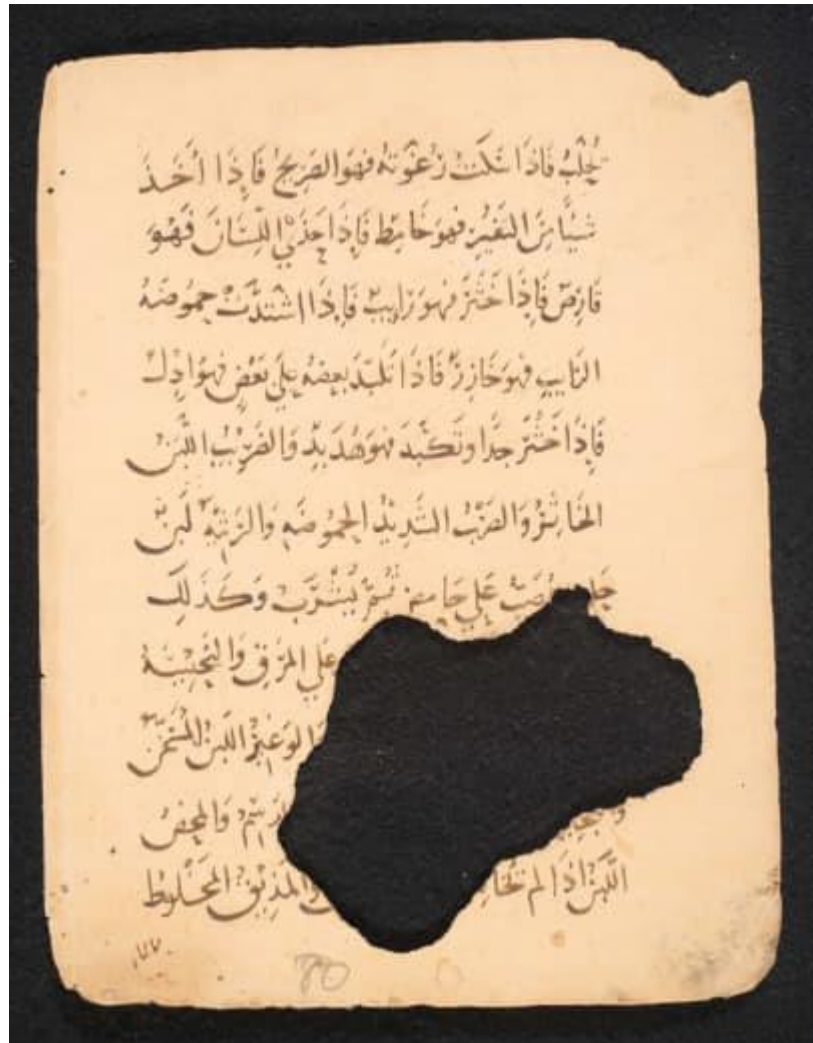 يُحْلَبُ فَاذَا سَكَنَتْ رُغْوَتُهُ فَهُوَ الصَّرِيحُ فَاِذَا اَخَذَ
شَيْئًا مِنَ التَغَيُّرِ فَهُوَ خَامِطٌ فَاِذَا حَذَي اللِّسَانَ فَهْوَ
قَارِصٌ فَاِذَا خَثُرَ فَهُوَ رَايِبٌ فَاِذَا اشْتَدَّتْ حُمُوضَةُ
الرَّايِبِ فَهوَ حَازِرٌ فَاذَا تَلَبَّدَ بعضُهُ عَلَي بَعْضٍ فَهُوَ اِدْلٌ
فَاِذَا خَثُرَ جِدًّا وَتَكَبَّدَ فَهوَ هُدَبِدٌ وَالضَّرِيْبُ اللَّبَنُ
الخَاثِرُ وَالصَّرْبُ الشَّدِيْدُ الحُمُوضَةِ وَالرَثِيَّةُ لَبَنٌ
عَلَي حَامِضٍ ثُمَّ يُشْرَبُ وَكَذَلِكَ
عَلَي المَرَقِ وَالنَّجِيْبَةُ
الوَغِيْرُ اللَّبَنُ المُسَخَّنُ
وَالمحْضُ
اللَّبَنُ اِذَا لم يُخَا وَالمَذِيْقُ المَخْلُوطُ
٧٧
80